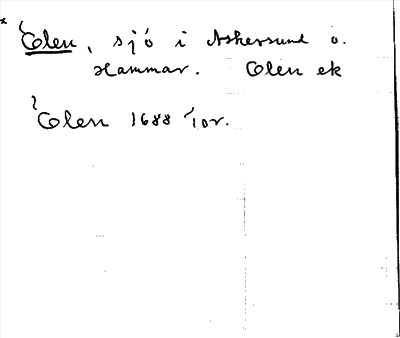 Olen, sjö i Askersund o.
Hammar. Olen ek
Olen 1688 Jor.